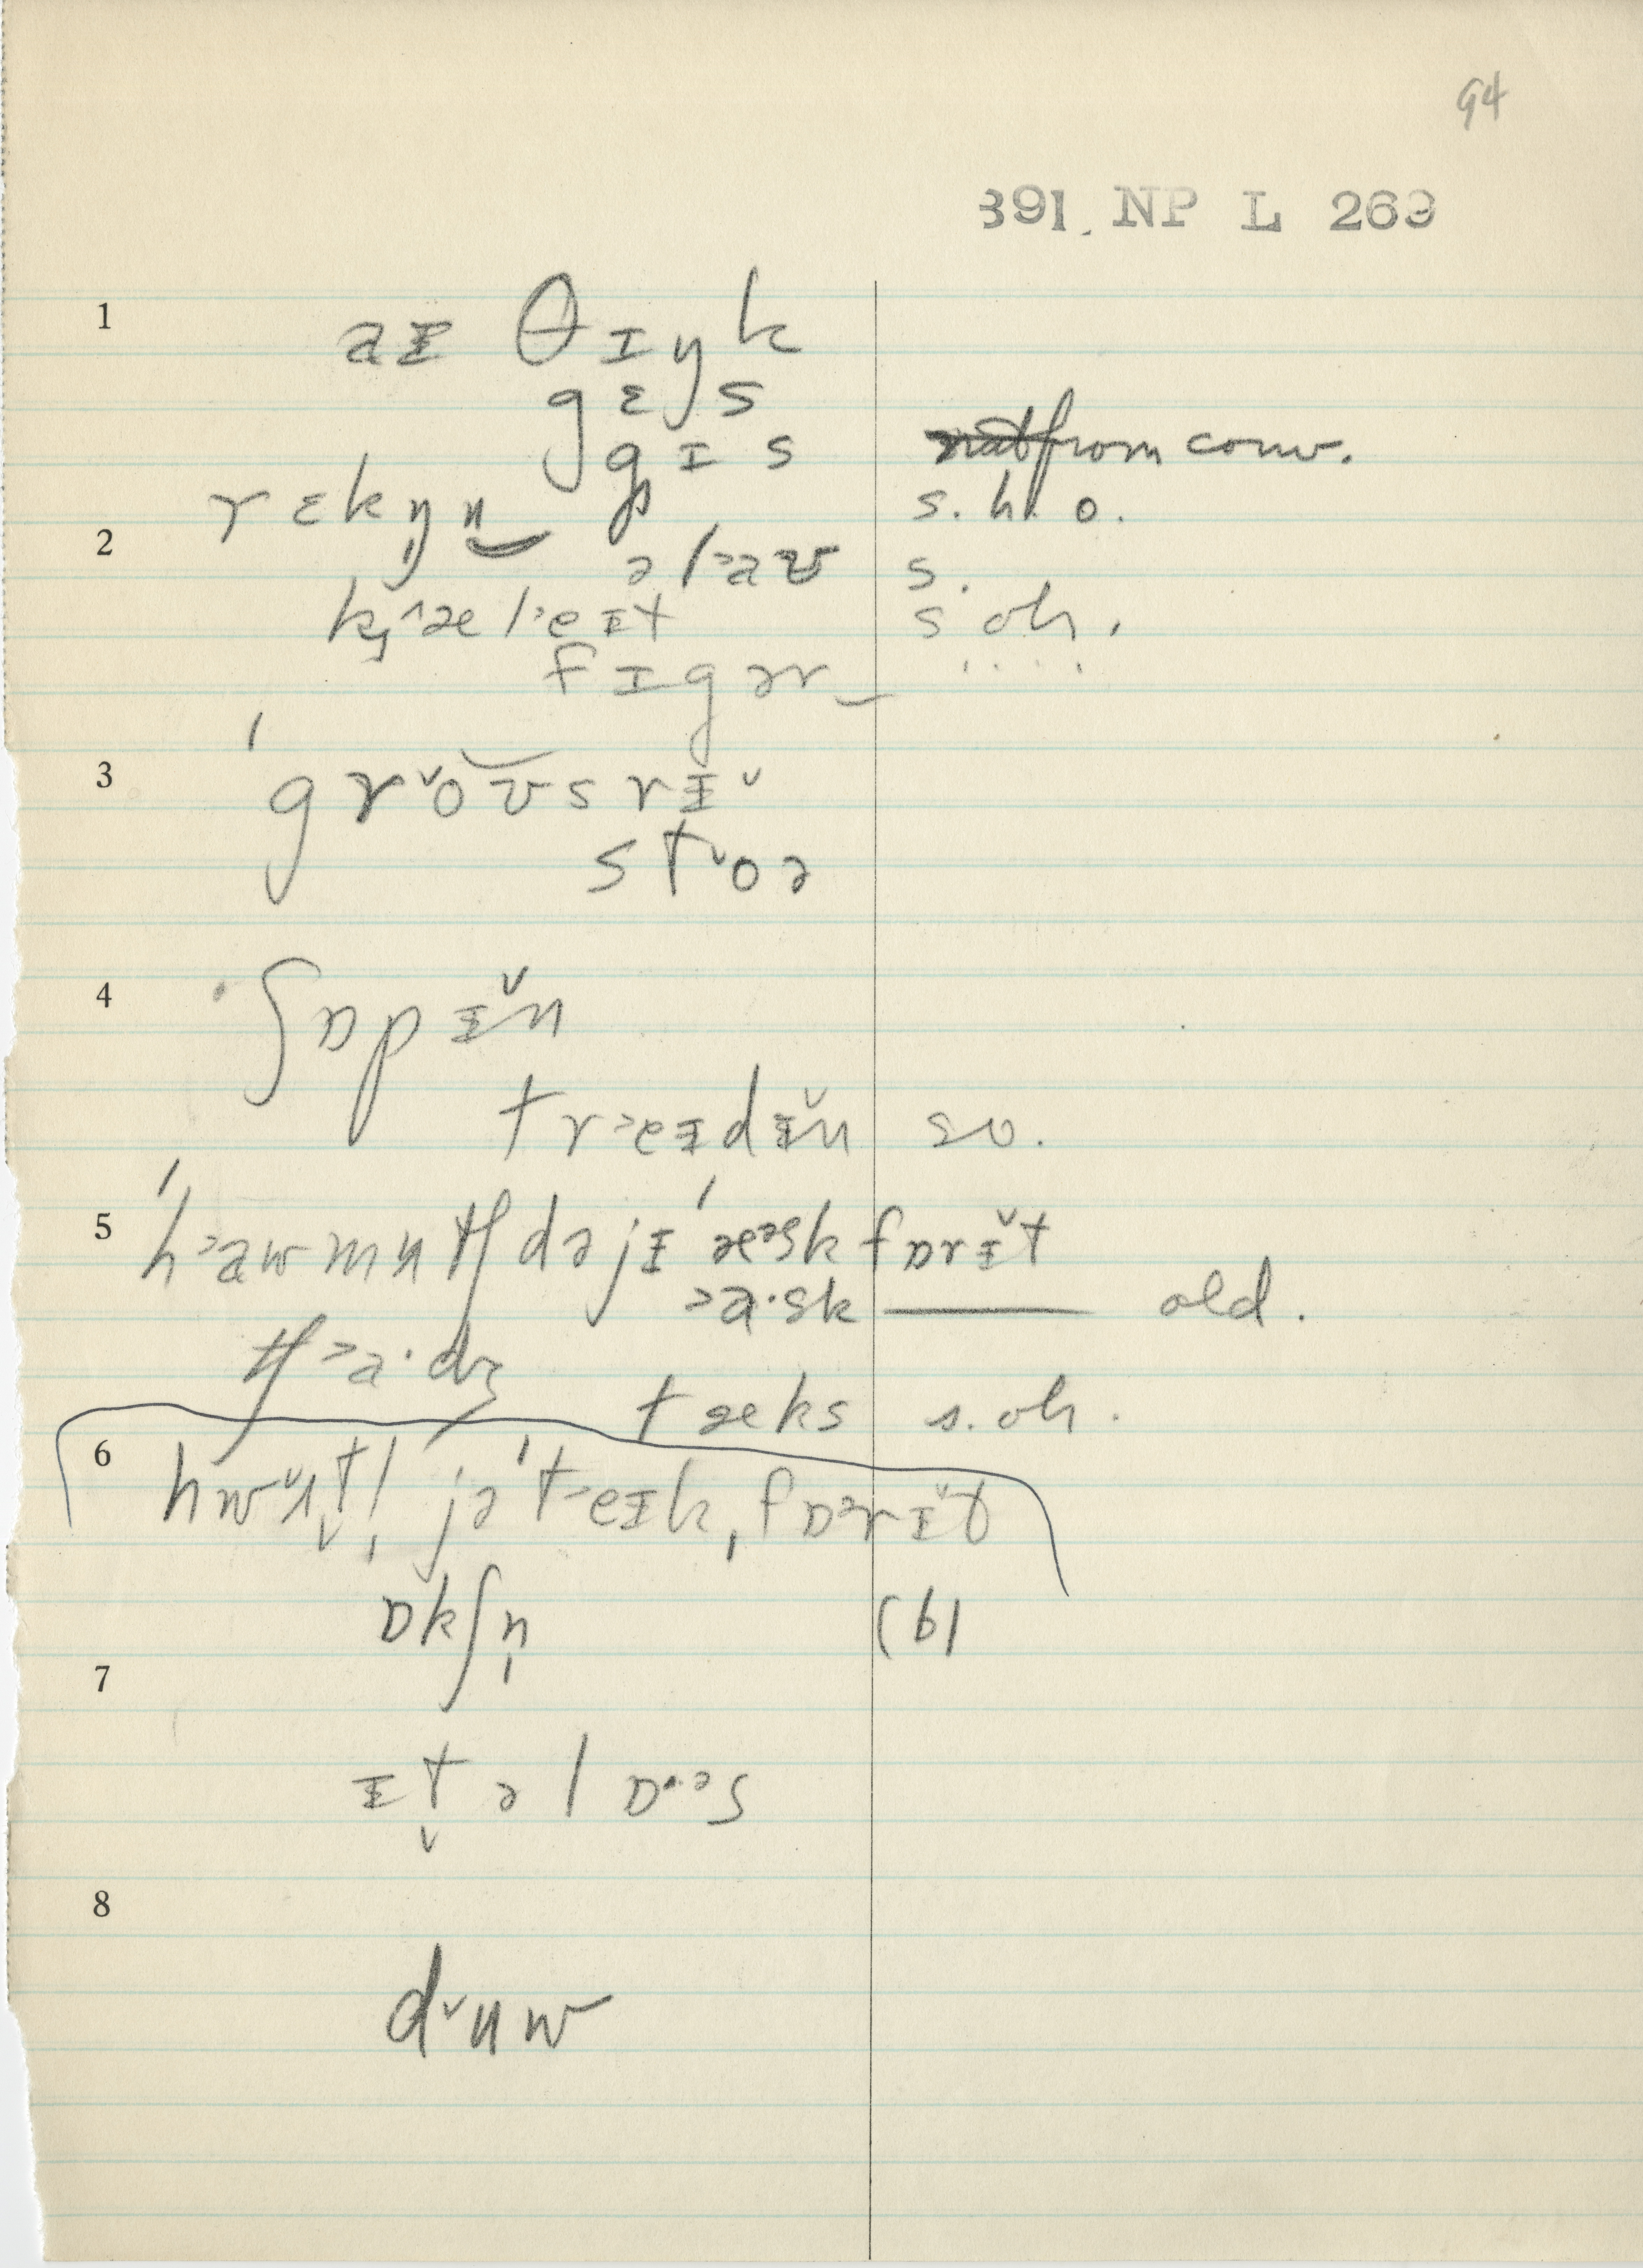 94
391. NP L 269
1
aᵻ θɪŋk
gɛs
gɪs from conv.
rɛkŋ̩n s. h. o.
2
əl˃aʊ s.
k̡˄æl˃eᵻt s oh.
fɪgər ....
ˈ
3 gr˅oʊsrᵻ˅
st˅oə
4 ʃɒpᵻ˅n
tr˃eᵻdᵻ˅n so.
5 ˈh˃aʊmʌtʃ dəjᵻ ˈæᵊsk fɒrᵻ˅t
˃a·sk ——— old.
tʃ˃a·dʒ
tæks s. oh.
6 hwʌ˅t̬! jə ˈt˃eᵻk, fɒᵊrᵻ˅t
ɒkʃn̩ (b)
7
ᵻt̬ əlɒ·ᵊs
8
d˅uw